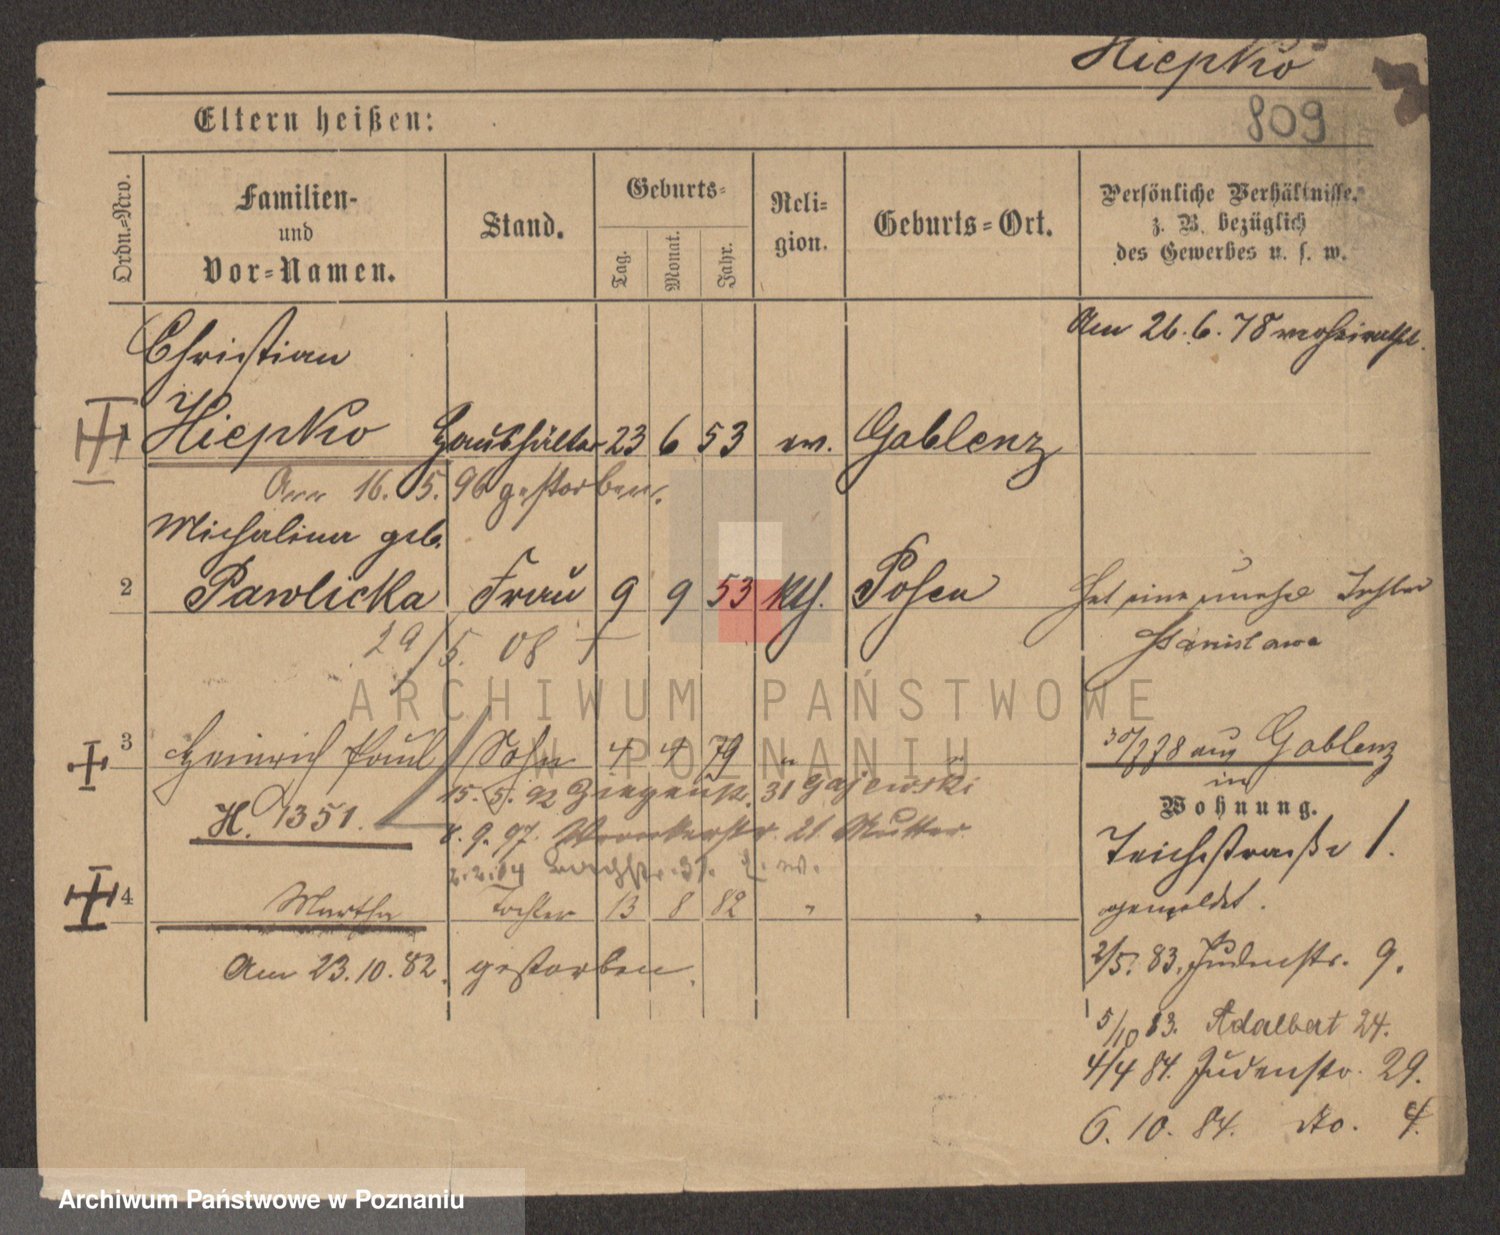 Hiepko
809
Eltern heißen:
Ordn.-Nro.
Familien-
und
Vor-Namen.
Stand.
Geburts-
Tag.
Monat.
Jahr.
Reli-
gion.
Geburts-Ort.
Persönliche Verhältnisse,
z. B. bezüglich
des Gewerbes u. s. w.
Christian
Am 26. 6. 78 verheirathet.
Hiepko Haushälter 23 6 53 ev. Gablenz
Am 16. 5. 96 gestorben.
Michalina geb.
2 Pawlicka Frau 9 9 53 kth. Posen Hat eine unehel Tochter
Stanislawa
29/5. 08 +
3 Heinrich Paul Sohn 4 4 79 " 30/7 78 aus Gablenz
in
15. 5. 92 Ziegenstr. 31 Gajewski
Wohnung.
H. 1351.
8. 9. 97. Wronkerstr. 21 Mutter
Teichstraße 1.
2. 2. 04
4 Martha Tochter 13 8 82 " "
gemeldet.
Am 23. 10. 82. gestorben.
2/5. 83. Judenstr. 9.
5/10 83. Adalbert 24.
4/4 84. Judenstr. 29.
6. 10. 84. do. 4.
ARCHIWUM PAŃSTWOWE
W POZNANIU
Archiwum Państwowe w Poznaniu